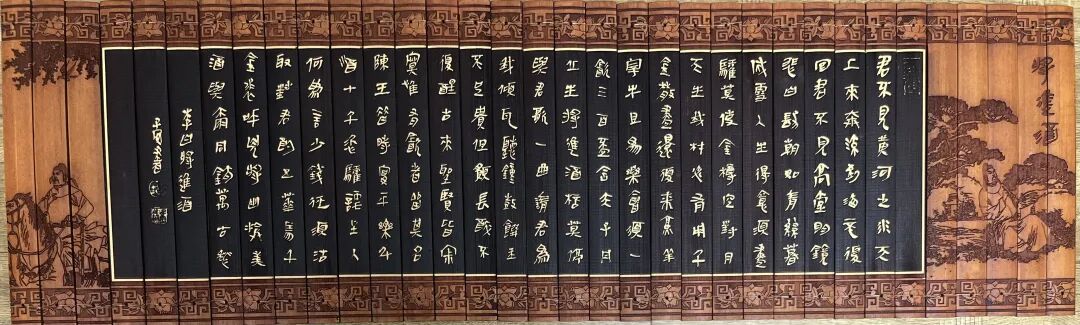 將進酒
君不見黃河之水天
上來奔流到海不復
回君不見高堂明鏡
悲白髮朝如青絲暮
成雪人生得意須盡
歡莫使金樽空對月
天生我材必有用千
金散盡還復來烹羊
宰牛且為樂會須一
飲三百盃岑夫子丹
丘生將進酒杯莫停
與君歌一曲請君為
我傾耳聽鐘鼓饌玉
不足貴但願長醉不
復醒古來聖賢皆寂
寞惟有飲者留其名
陳王昔時宴平樂斗
酒十千恣歡謔主人
何為言少錢徑須沽
取對君酌五花馬千
金裘呼兒將出換美
酒與爾同銷萬古愁
李白將進酒